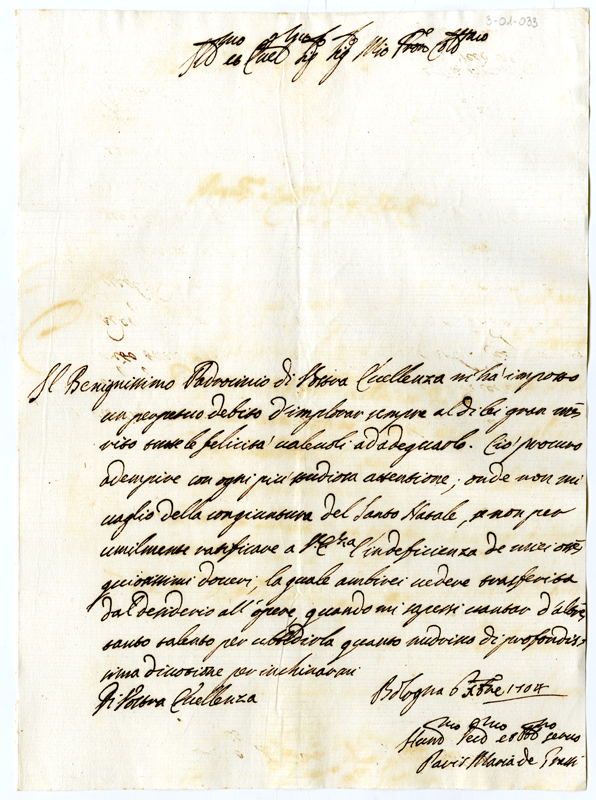 3-01-033
Ill.mo et Ecc.mo Sig.r Sig.r Mio P.ron Col.mo
Il Benignissimo Padrocinio di Vostra Eccellenza m'ha imposto
un perpetuo debito d'implorar sempre al di lei gran me-
rito tutte le felicità valevoli ad adeguarlo. Ciò procuro
adempire con ogni più studiosa attentione; onde non mi
vaglio della congiuntura del Santo Natale, se non per
umilmente ratificare a V. Ecc.za l'indeficienza de miei osse-
quiosissimi doveri, la quale ambirei vedere trasferita
dal desiderio all'opere, quando mi sapessi vantar d'altre-
tanto talento per ubbedirla quanto nudrisco di profondis-
sima divotione per inchinarmi
Di Vostra Eccellenza
Bologna 6 Xbre 1704
Hum.mo Dev.mo et Obb.mo Servo
Maria de